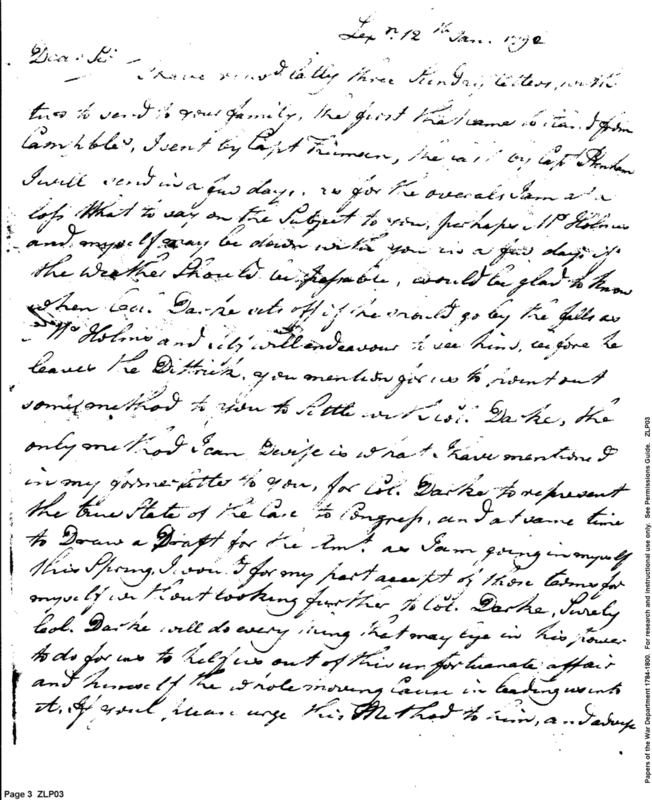 Lexn. 12th Jan. 1792
Dear Sir
I have rec'd lately three Sundry letters, with
two to send to your family, the first that came to hand from
Campbles, I sent by Capt the last by Capt
I will send in a few days. as for the overals I am at a
loss what to say on the Subject to you, perhaps Mr Holms
and myself may be down with you in a few days if
the weather should be passable, would be glad to know
when Col. Darke sets off if he should go by the falls as
Mr Holms and will endeavour to see him, before he
leaves the Distrik. you mention for us to point out
some method to you to Settle with Col. Darke, the
only method I can Devise is what I have mentioned
in my former letter to you, for Col. Darke to represent
the true State of the Case to Congress, and at same time
to Draw a Draft for the Amt. as I am going in myself
this Spring, I wou'd for my part accept of those terms for
myself without looking further to Col. Darke, Surely
Col. Darke will do every thing that may lye in his power
to do for us to help us out of this unfortunate affair
and himself the whole moving Cause in leading us into
it. If you'l please urge this Method to him, and advise
Page 3 ZLP03
Papers of the War Department 1784-1800. For research and instructional use only. See Permissions Guide. ZLP03